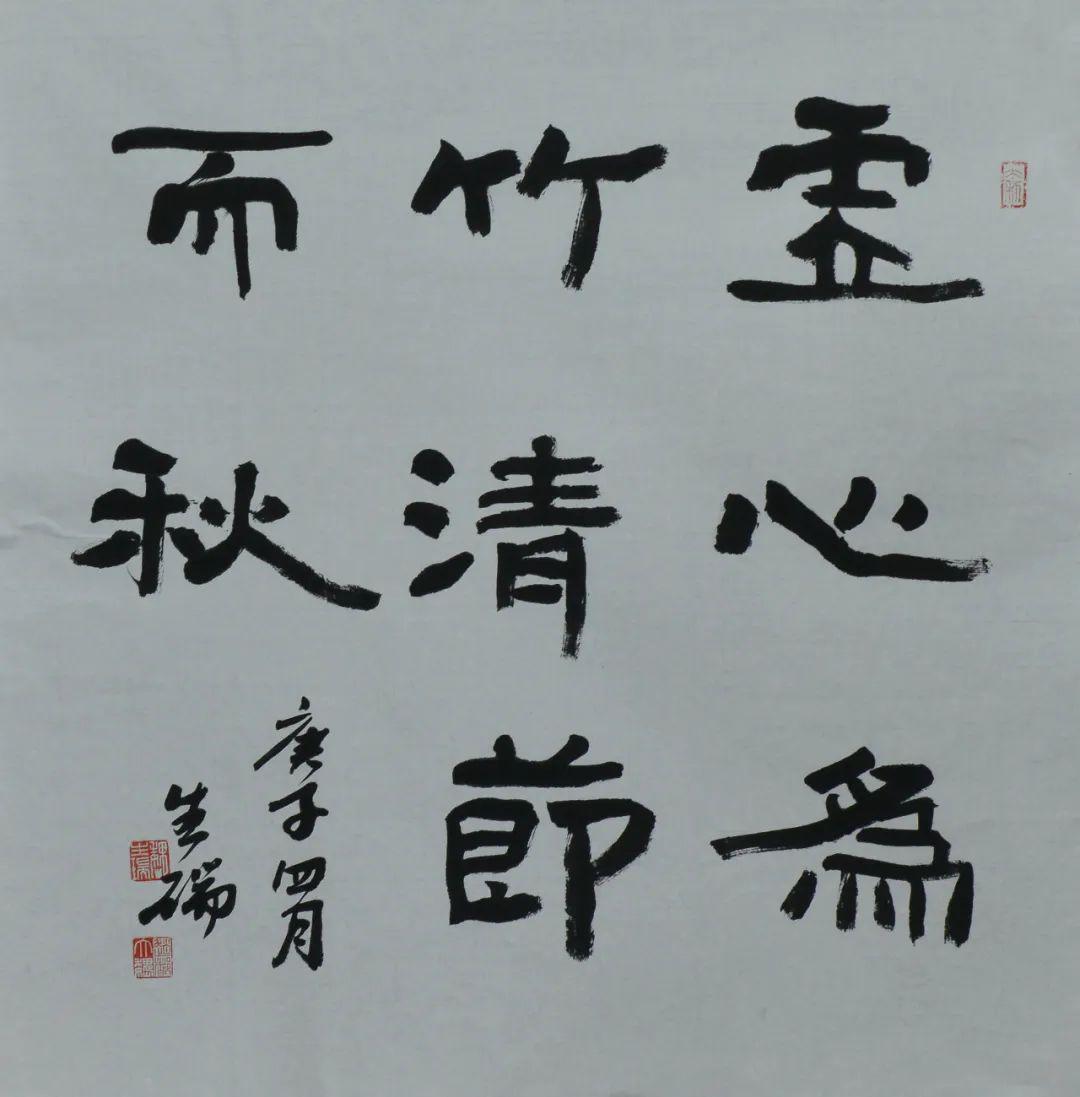 虛心爲
竹清節
而秋
庚子四月
生瑞